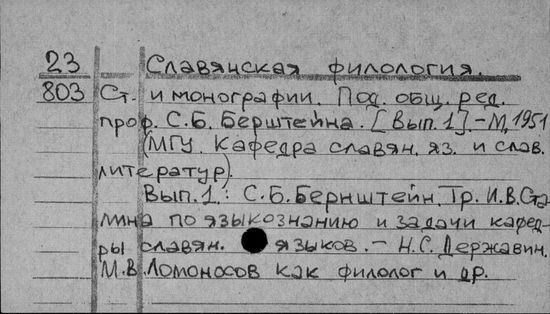 23 Славянская филология.
803 Ст. и монографии. Под. общ. ред.
проф. С.Б. Берштейна. [Вып. 1]. - М, 1951
(МГУ. Кафедра славян. яз. и слав.
литератур).
Вып. 1: С.Б. Бернштейн. Тр. И.В. Ста-
лина по языкознанию и задачи кафед-
ры славян. языков. - Н.С. Державин.
М.В. Ломоносов как филолог и др.